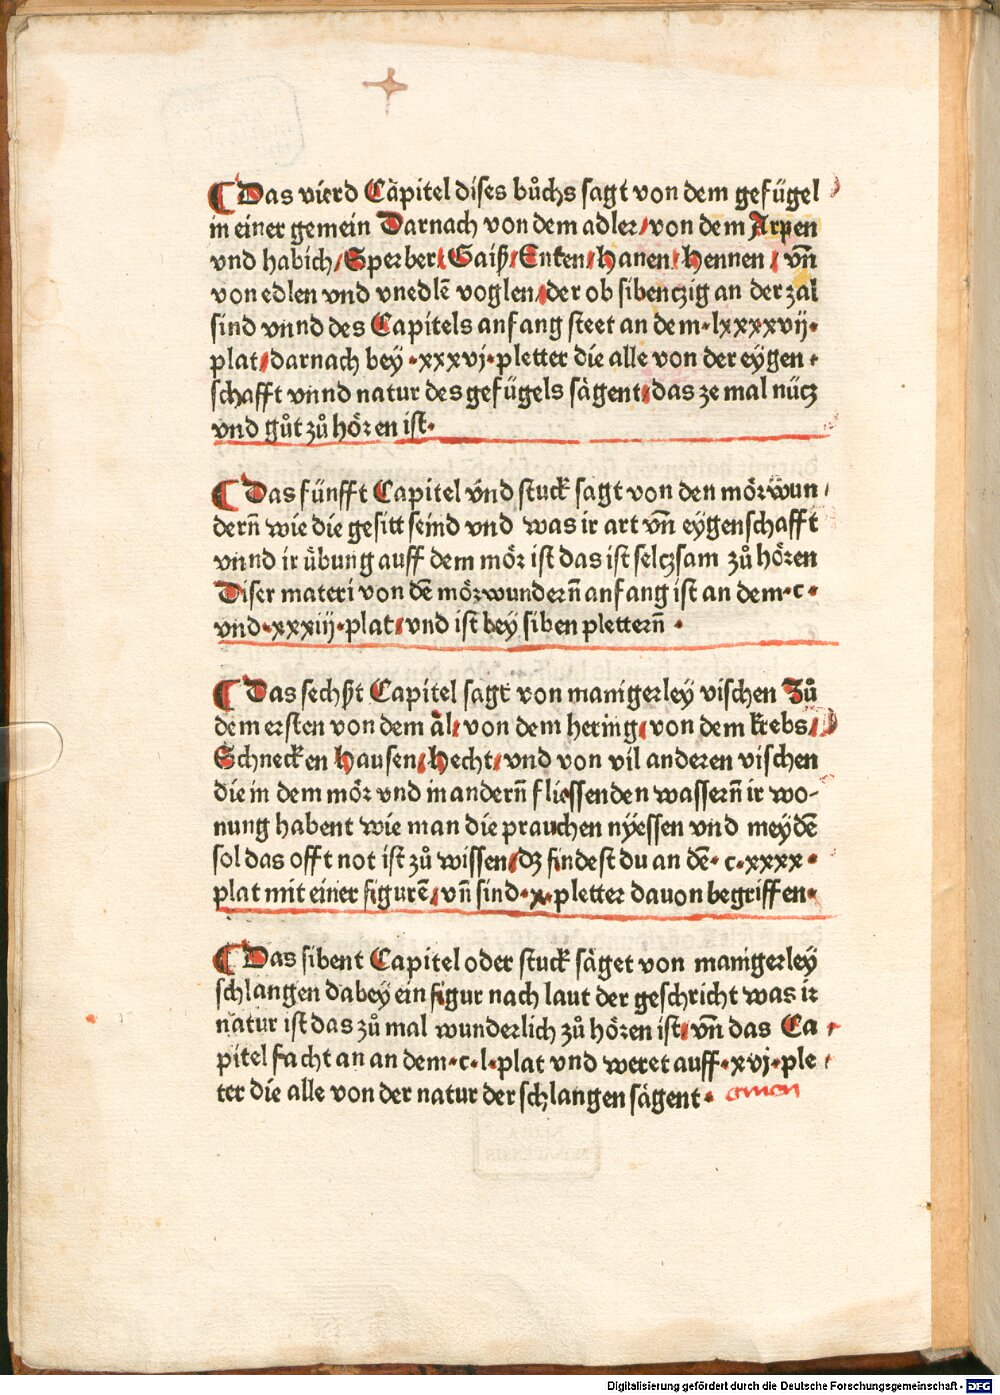 ¶ Das vierd Cäpitel dises bůchs sagt von dem gefügel
in einer gemein Darnach von dem adler/von dem Arpen
vnd habich/Sperber/Gaiß/Enten/Hanen/Hennen/vn̄
von edlen vnd vnedlē voglen/der ob sibenczig an der zal
sind vnnd des Capitels anfang steet an dem·lxxxxvij·
plat/darnach bey ·xxxvj·pletter die alle von der eygen⸗
schafft vnnd natur des gefügels sägent/das ze mal nücz
vnd gůt zů hören ist·
¶ Das fünfft Capitel vnd stuck sagt von den mörwun⸗
dern̄ wie die gesitt seind vnd was ir art vn̄ eygenschafft
vnnd ir übung auff dem mör ist das ist selczsam zů hören
Diser materi von dē mörwundern̄ anfang ist an dem·c·
vnd·xxxiij·plat/vnd ist bey siben plettern̄ ·
¶ Das sechßt Capitel sagt von manigerley vischen Zů
dem ersten von dem äl/von dem hering/von dem krebs/
Schnecken Hausen/Hecht/vnd von vil anderen vischen
die in dem mör vnd in andern̄ fliessenden wassern̄ ir wo⸗
nung habent wie man die prauchen nyessen vnd meydē
sol das offt not ist zů wissen/dz findest du an dē·c·xxxx·
plat mit einer figurē/vn̄ sind·x·pletter dauon begriffen·
¶ Das sibent Capitel oder stuck säget von manigerley
schlangen dabey ein figur nach laut der geschricht was ir
natur ist das zů mal wunderlich zů hören ist/vn̄ das Ca⸗
pitel facht an an dem·c·l·plat vnd weret auff·xvj·ple⸗
ter die alle von der natur der schlangen sägent· amen
Digitalisierung gefördert durch die Deutsche Forschungsgemeinschaft - DFG